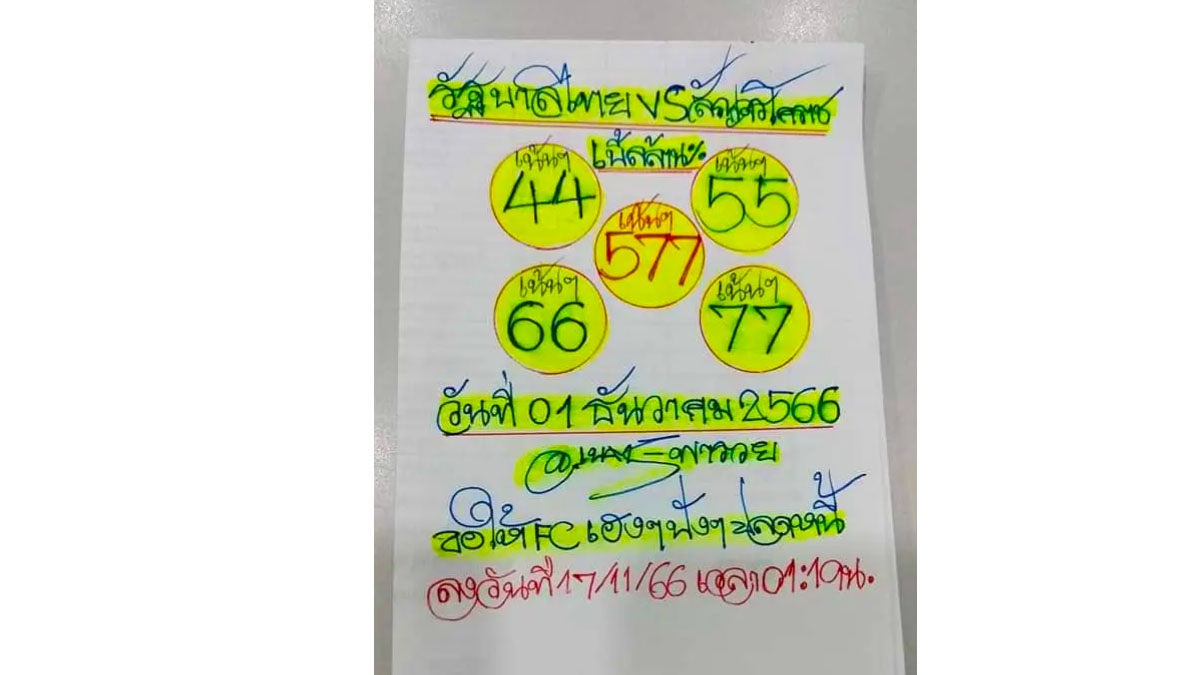 รัฐบาลไทย VS
เบิ้ลล้านะ
เน้นๆ
44
เน้นๆ
55
เน้นๆ
577
เน้นๆ
66
เน้นๆ
77
วันที่ 01 ธันวาคม 2566
พารวย
ขอให้ FC เฮงๆ ปังๆ ปลดหนี้
ลงวันที่ 17/11/66 เวลา 01:19น.